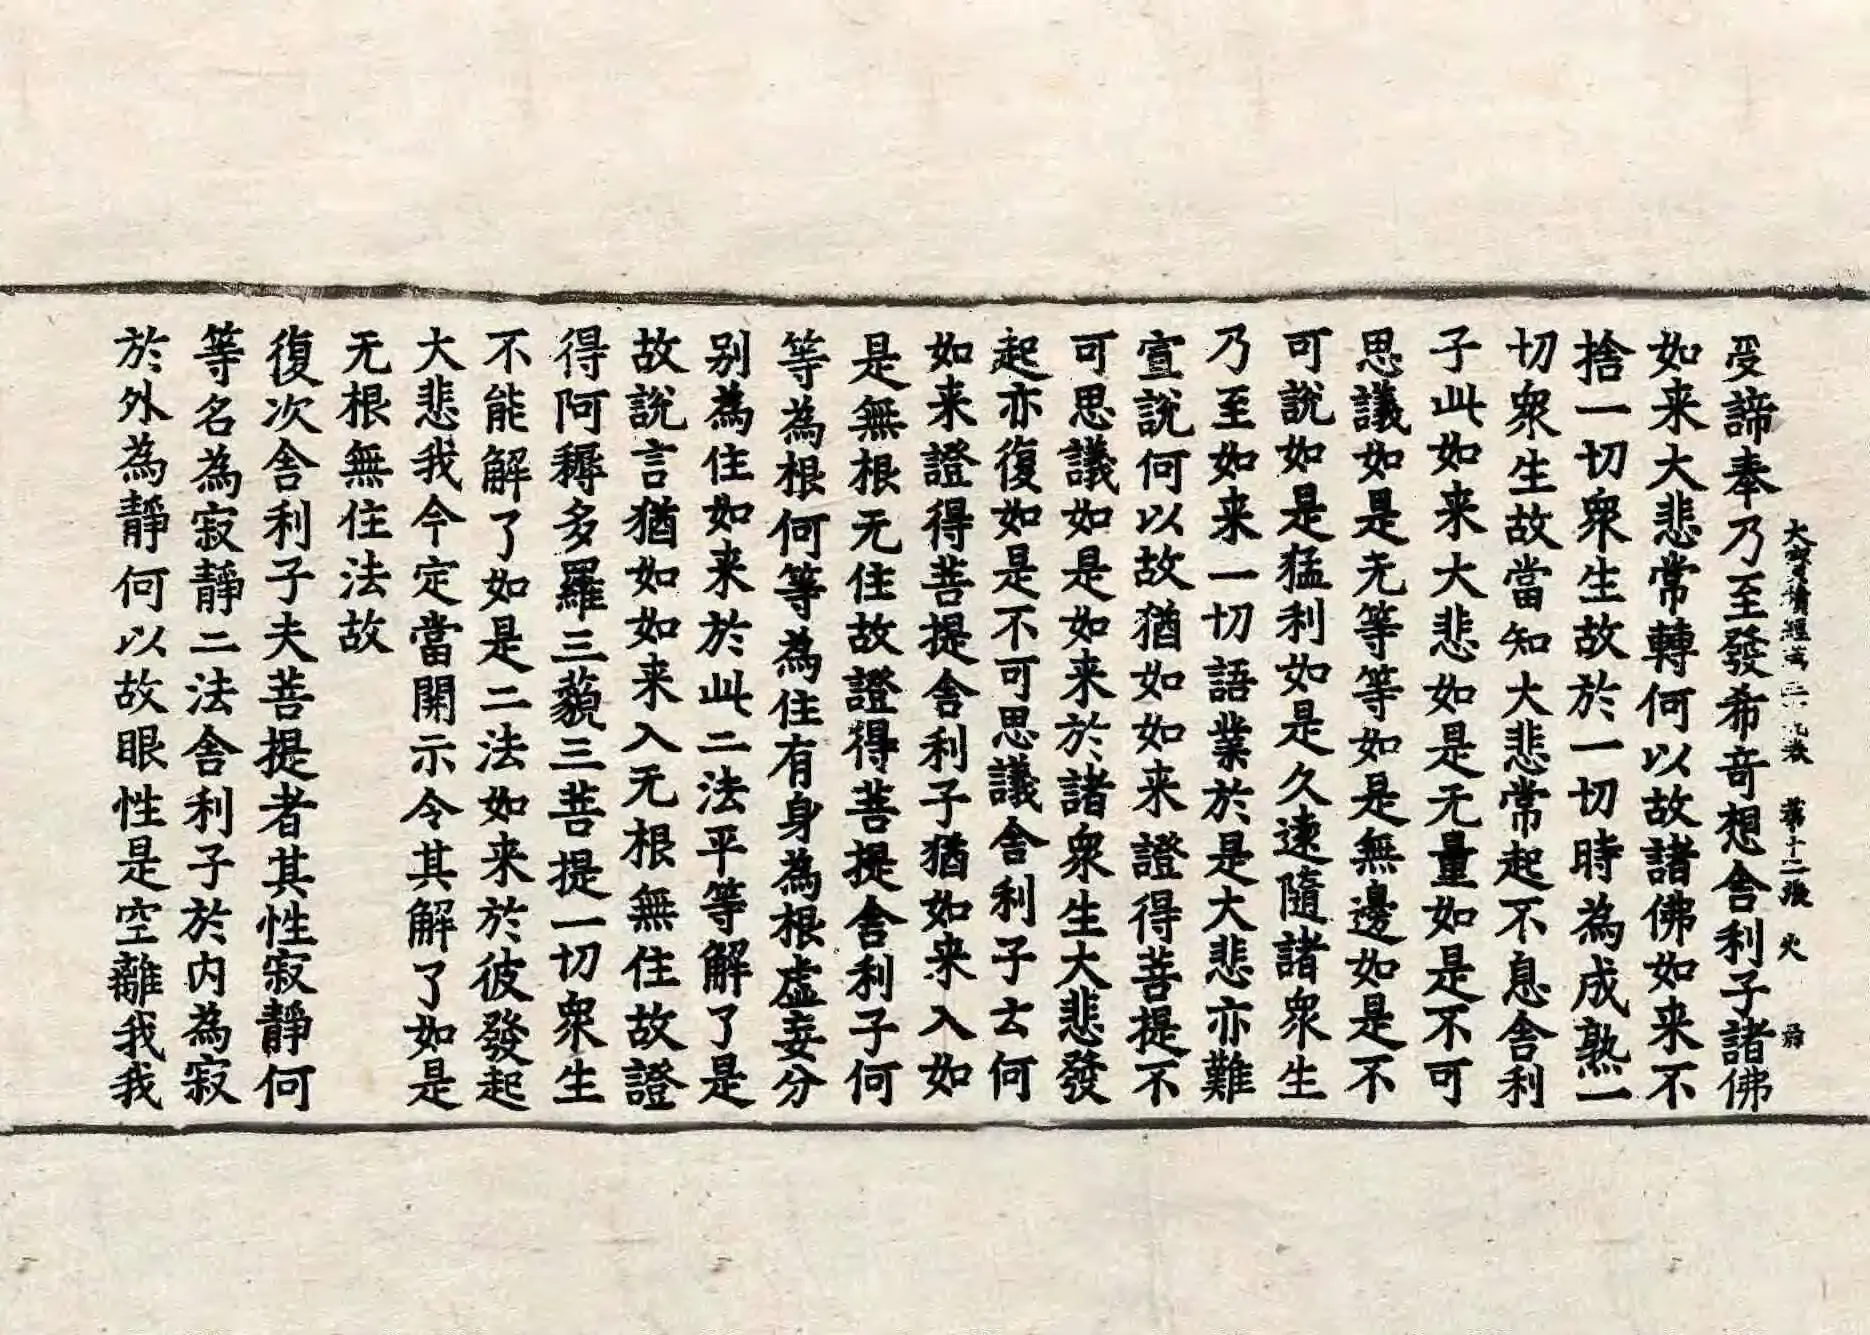 大寶積經 第十二張 火
受諦奉乃至發希竒想舍利子諸佛
如来大悲常轉何以故諸佛如来不
捨一切衆生故於一切時為成熟一
切衆生故當知大悲常起不息舍利
子此如来大悲如是无量如是不可
思議如是无等等如是無邊如是不
可說如是猛利如是久遠隨諸衆生
乃至如来一切語業於是大悲亦難
宣說何以故猶如如来證得菩提不
可思議如是如来於諸衆生大悲發
起亦復如是不可思議舍利子云何
如来證得菩提舍利子猶如来入如
是無根无住故證得菩提舍利子何
等為根何等為住有身為根虛妄分
别為住如来於此二法平等解了是
故說言猶如如来入无根無住故證
得阿耨多羅三藐三菩提一切衆生
不能解了如是二法如来於彼發起
大悲我今定當開示令其解了如是
无根無住法故
復次舍利子夫菩提者其性寂靜何
等名為寂靜二法舍利子於内為寂
於外為靜何以故眼性是空離我我